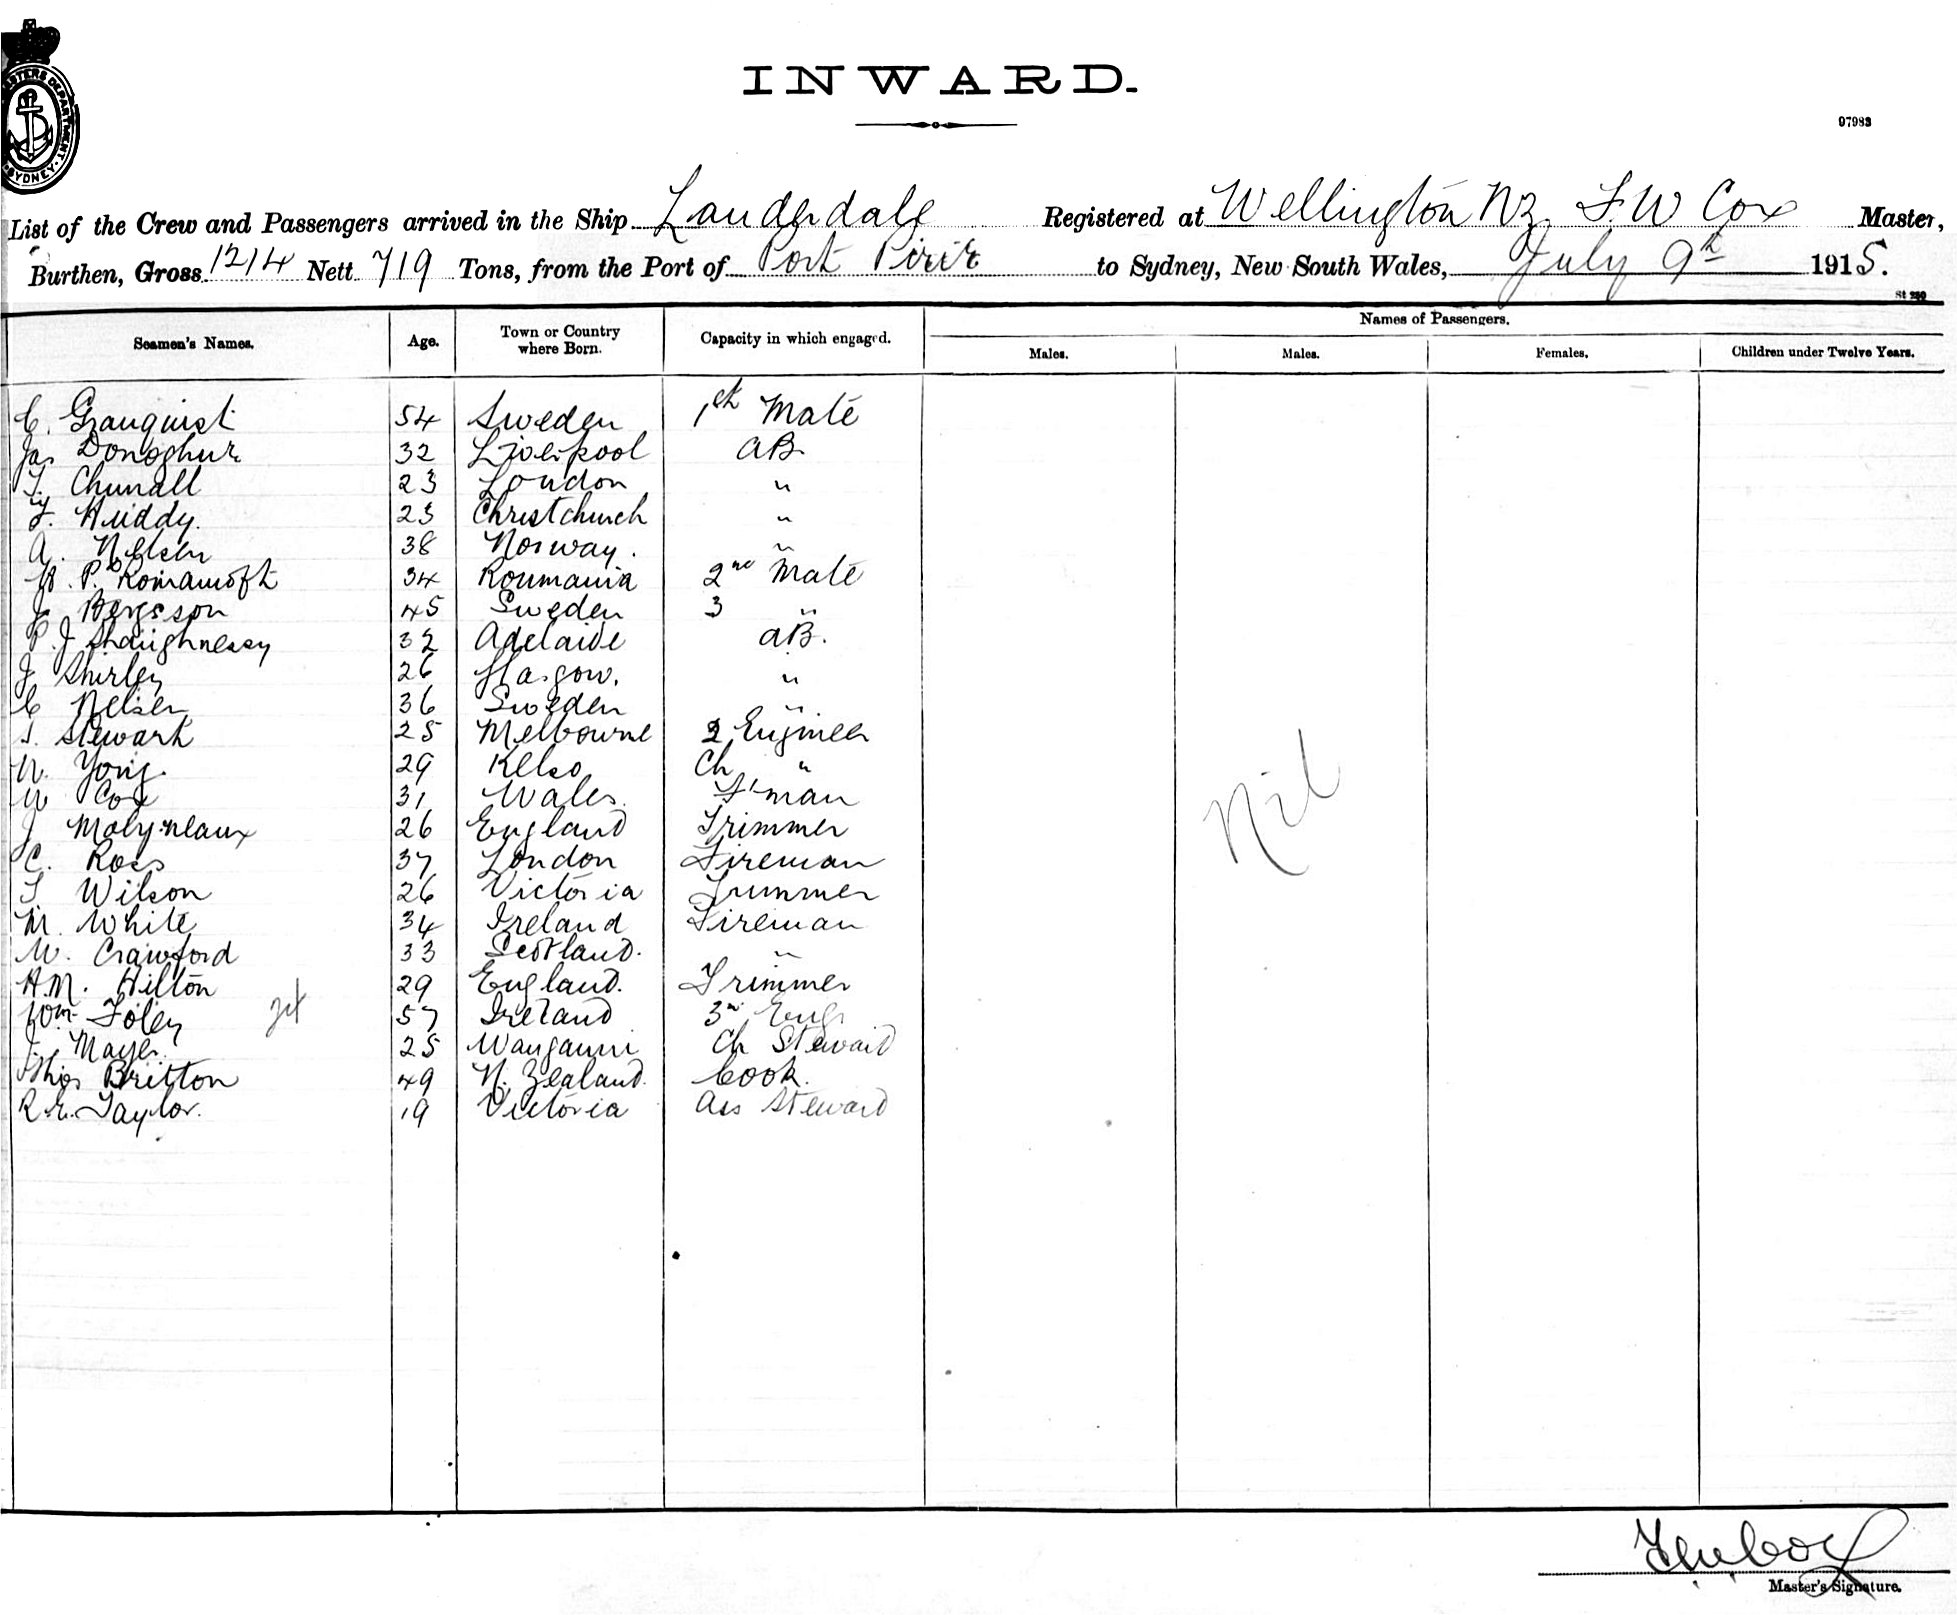 INWARD.
97983
MASTERS DEPARTMENT. SYDNEY.
List of the Crew and Passengers arrived in the Ship Lauderdale Registered at Wellington NZ F.W Cox Master,
Burthen, Gross 1214 Nett 719 Tons, from the Port of Port Pirie to Sydney, New South Wales, July 9th 1915.
St 280
Seamen's Names. Age. Town or Country where Born. Capacity in which engaged. Names of Passengers.
Males. Males. Females. Children under Twelve Years.
C. Granquist 54 Sweden 1st Mate
Jas Donoghue 32 Liverpool AB.
T. Chunall 23 London "
F. Huddy. 23 Christchurch "
A. Nelsen 38 Norway. "
P. Romamoft 34 Roumania 2nd Mate
J Bergsson 45 Sweden 3 "
P.J Shaughnessy 32 Adelaide AB.
J Shirley 26 Glasgow. "
C Nelsen 36 Sweden "
T. Stewart 25 Melbourne 2 Engineer
W. Yorig. 29 Kelso Ch "
W Cox 31 Wales. F'man
J Molyneaux 26 England Trimmer
C. Ross 37 London Fireman
T Wilson 26 Victoria Trimmer
M. White 34 Ireland Fireman
W. Crawford 33 Scotland. "
H.M. Hilton 29 England. Trimmer
Wm Foley 57 Ireland 3rd Eng
J. Mayer. 25 Wanganui Ch Steward
Thos Britton 49 N. Zealand. Cook.
R.E. Taylor. 19 Victoria Ass Steward
Nil
FWCox
Master's Signature.